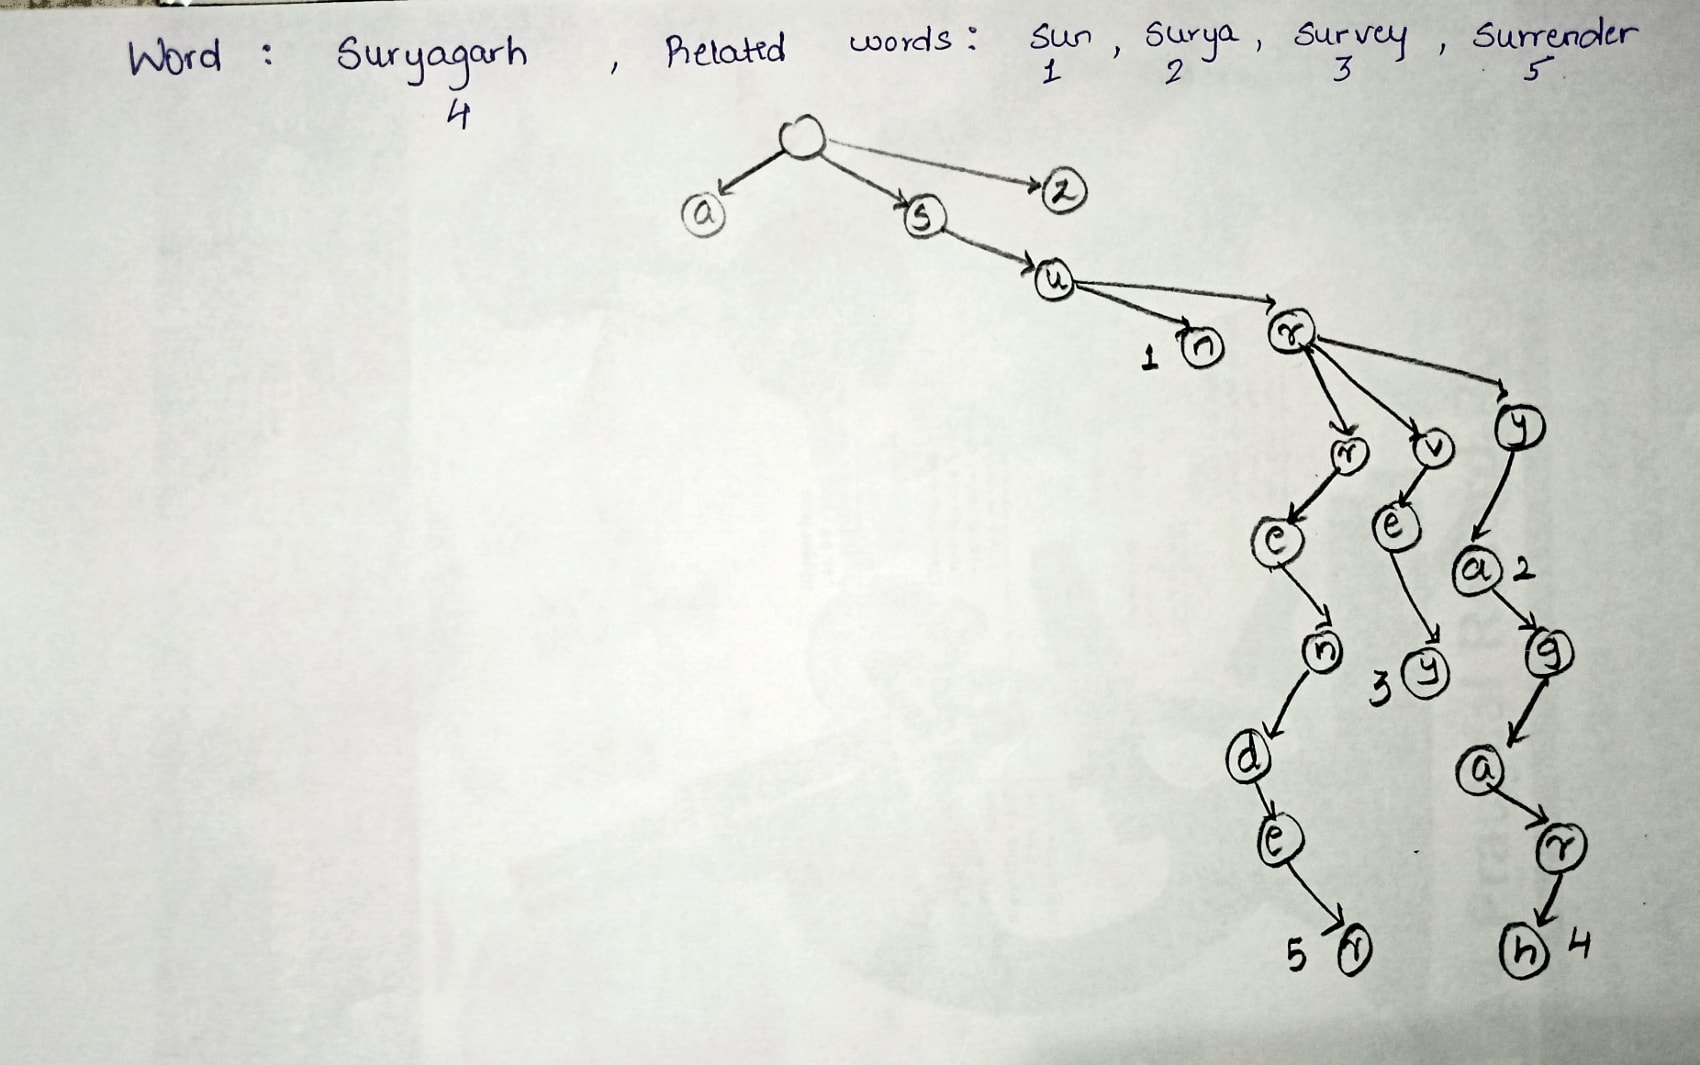 Word : Suryagarh , Related words : Sun , Surya , Survey , Surrender
4 1 2 3 5
a s z
u
1 n r
r v y
e e a 2
n 3 y g
d a
e r
5 r h 4